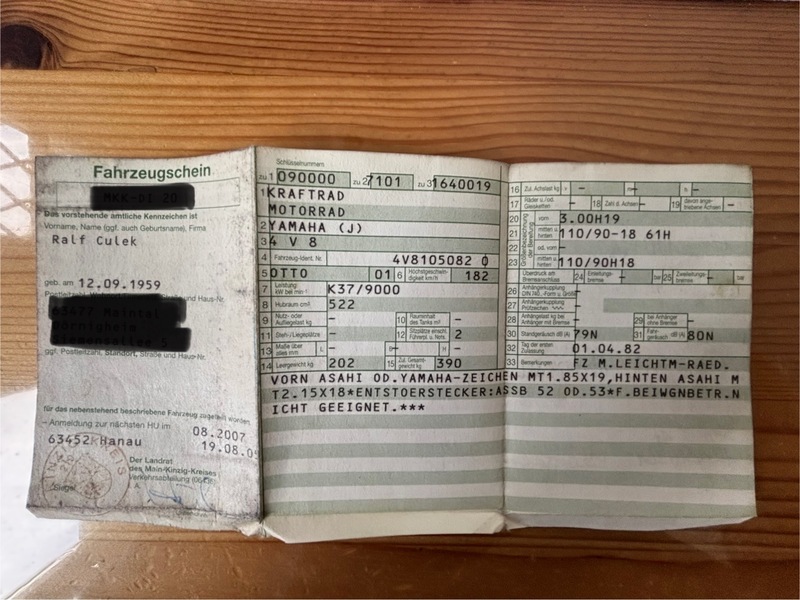 Fahrzeugschein
Das vorstehende amtliche Kennzeichen ist
Vorname, Name (ggf. auch Geburtsname), Firma
Ralf Culek
geb. am 12.09.1959
ggf. Postleitzahl, Standort, Straße und Haus-Nr.
für das nebenstehend beschriebene Fahrzeug zugeteilt worden
– Anmeldung zur nächsten HU im 08.2007
63452 Hanau 19.08.05
Der Landrat
des Main-Kinzig-Kreises
Verkehrsabteilung
Siegel
Schlüsselnummern
zu 1 090000 zu 2 7101 zu 3 1640019
1 KRAFTRAD
MOTORRAD
2 YAMAHA (J)
3 4 V 8
4 Fahrzeug-Ident. Nr. 4V8105082 0
5 OTTO 01 6 Höchstgeschwin-digkeit km/h 182
7 Leistung kW bei min⁻¹ K37/9000
8 Hubraum cm³ 522
9 Nutz- oder Aufliegelast kg – 10 Rauminhalt des Tanks m³ –
11 Steh-/Liegeplätze – 12 Sitzplätze einschl. Führerpl. u. Nots. 2
13 Maße über alles mm L – B – H –
14 Leergewicht kg 202 15 Zul. Gesamtgewicht kg 390
16 Zul. Achslast kg v – m – h –
17 Räder u./od. Gleisketten – 18 Zahl d. Achsen – 19 davon angetriebene Achsen –
Größenbezeichnung der Bereifung
20 vorn 3.00H19
21 mitten u. hinten 110/90-18 61H
22 od. vorn –
23 mitten u. hinten 110/90H18
Überdruck am Bremsanschluss 24 Einleitungs-bremse – bar 25 Zweileitungs-bremse – bar
26 Anhängerkupplung DIN 740.., Form u. Größe –
27 Anhängerkupplung Prüfzeichen –
28 Anhängelast kg bei Anhänger mit Bremse – 29 bei Anhänger ohne Bremse –
30 Standgeräusch dB (A) 79N 31 Fahrgeräusch dB (A) 80N
32 Tag der ersten Zulassung 01.04.82
33 Bemerkungen FZ M.LEICHTM-RAED.
VORN ASAHI OD.YAMAHA-ZEICHEN MT1.85X19,HINTEN ASAHI M
T2.15X18*ENTSTOERSTECKER:ASSB 52 OD.53*F.BEIWGNBETR.N
ICHT GEEIGNET.***